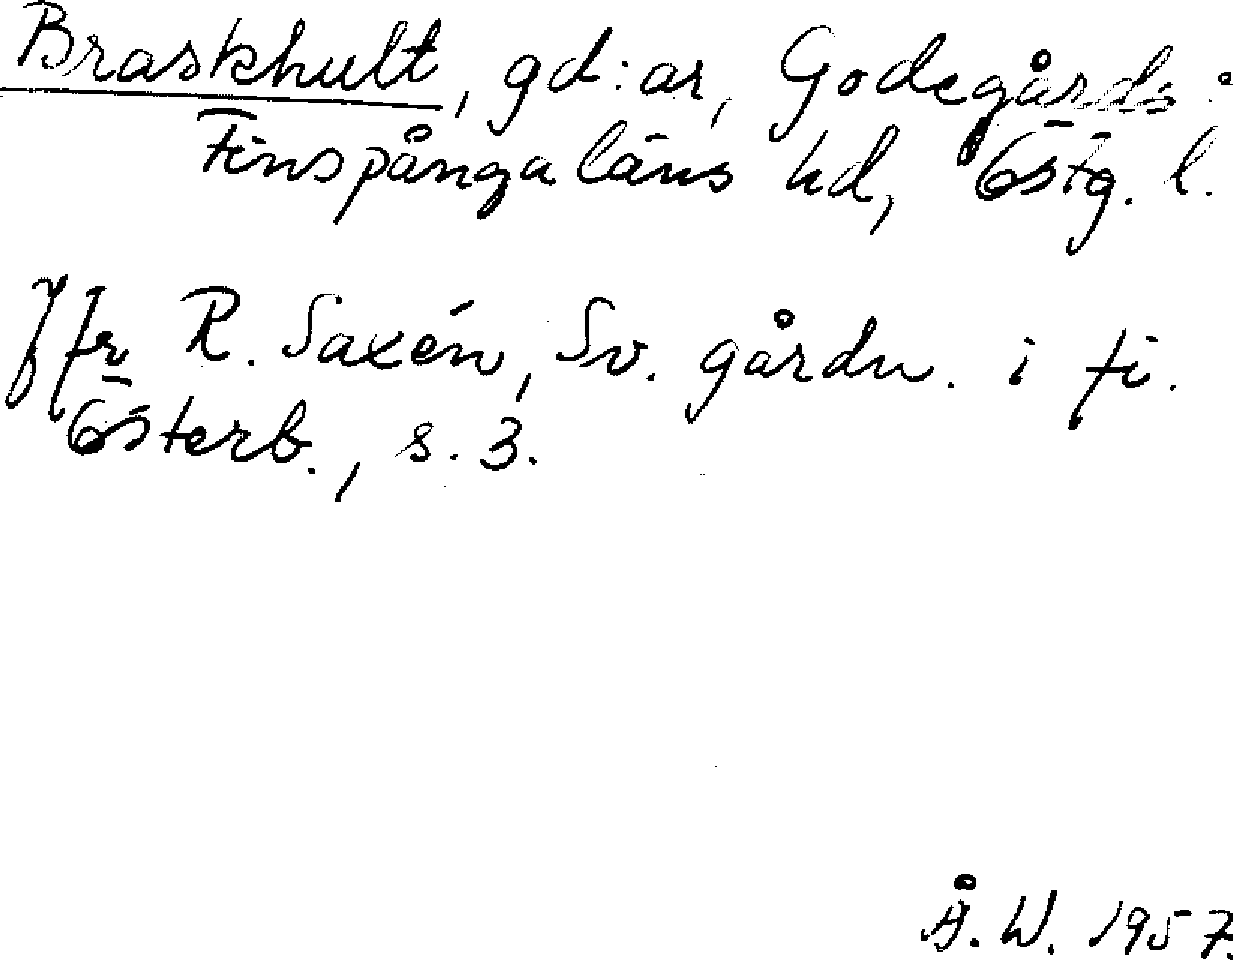 Braskhult, gd:ar, Godegårds:
Finspånga läns hd, Östg. l.
Jfr R. Saxén, Sv. gårdn. i fi.
Österb., s. 3.
Å. W. 1957.